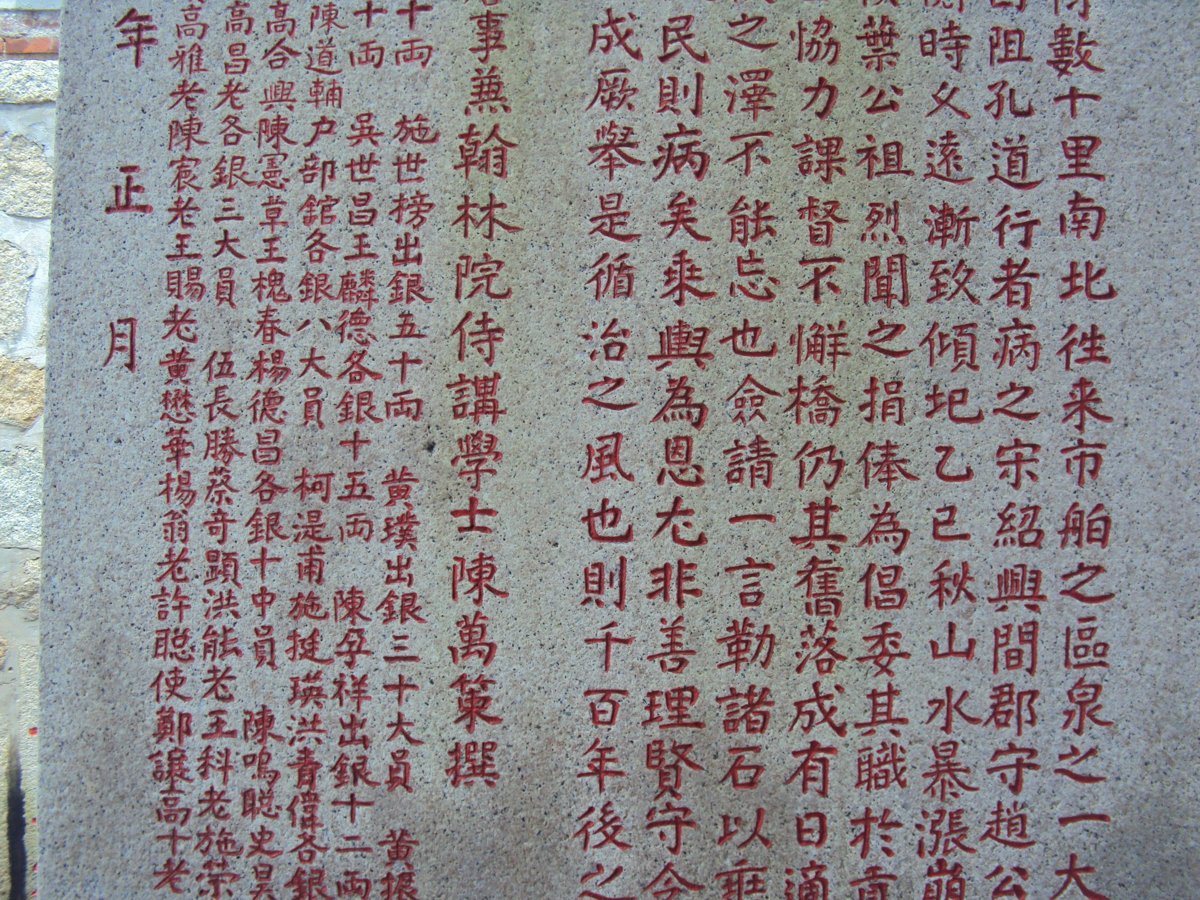 數十里南北徃来市舶之區泉之一大
阻孔道行者病之宋紹興間郡守趙公
時夂遠漸致傾圯乙巳秋山水暴漲崩
葉公祖烈聞之捐俸為倡委其職於
協力課督不懈橋仍其舊落成有日適
之澤不能忘也僉請一言勒諸石以垂
民則病矣乘輿為恩尢非善理賢守令
成厥舉是循治之風也則千百年後之
事兼翰林院侍講學士陳萬策撰
十両 施世榜出銀五十両 黄璞出銀三十大員 黄振
十両 吳世昌王麟德各銀十五両 陳孕祥出銀十二両
陳道輔户部舘各銀八大員 柯湜甫施挺瑛洪青僯各銀
高合興陳憲章王槐春楊德昌各銀十中員 陳鳴聪史昊
高昌老各銀三大員 伍長勝蔡奇顕洪能老王科老施荣
高雅老陳宸老王賜老黄懋華楊翁老許聪使鄭讓高十老
年 正 月